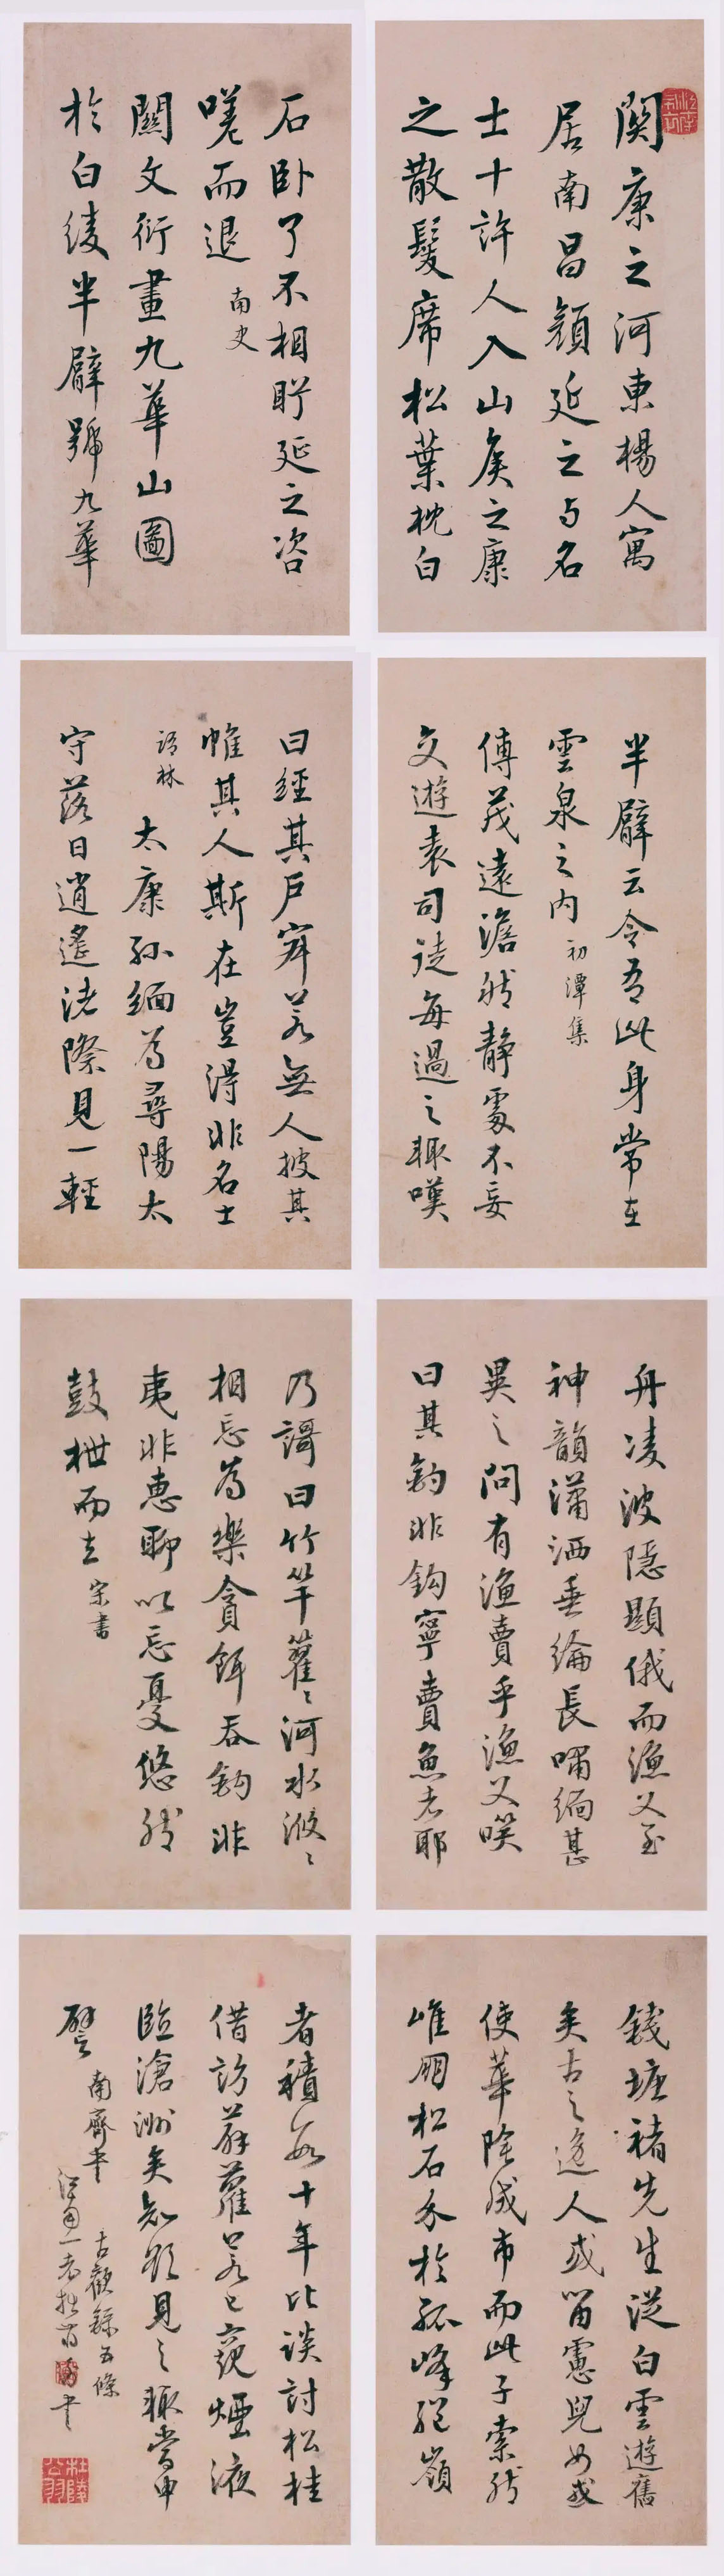 關康之河東楊人寓
居南昌顏延之与名
士十許人入山矦之康
之散髮席松葉枕白
石卧了不相眄延之咨
嗟而退 南史
關文衍畫九華山圖
於白綾半臂號九華
半臂云令吾此身常在
雲泉之内 初潭集
傅茂遠澹然靜處不妄
交遊袁司徒每過之輒嘆
曰經其戶寂若無人披其
帷其人斯在豈得非名士
語林 太康孫緬為尋陽太
守落日逍遙渚際見一輕
舟凌波隱顯俄而漁父至
神韻瀟洒垂綸長嘯緬甚
異之問有漁賣乎漁父咲
曰其釣非鈎寧賣魚者耶
乃謌曰竹竿籊〻河水浟〻
相忘為樂貪餌吞鈎非
夷非惠聊以忘憂悠然
鼓枻而去 宋書
錢塘褚先生從白雲遊舊
矣古之逸人或留慮兒女或
使華陰成市而此子索然
唯朋松石介於孤峰絕嶺
者積數十年比談討松桂
借訪薜蘿若已窺煙液
臨滄洲矣知欲見之輒當申
譬 南齊書 古歡錄五條
杜陵